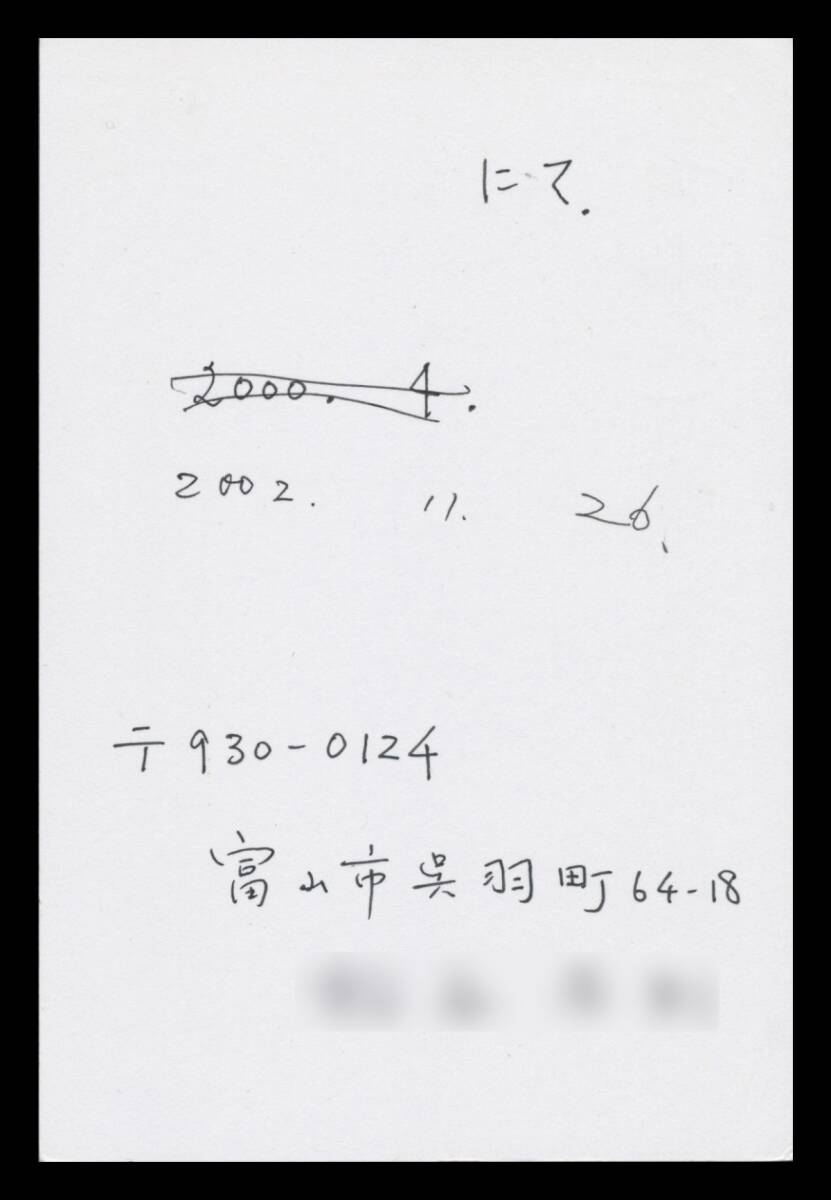 にて.
2000. 4.
2002. 11. 26.
〒930-0124
富山市呉羽町64-18